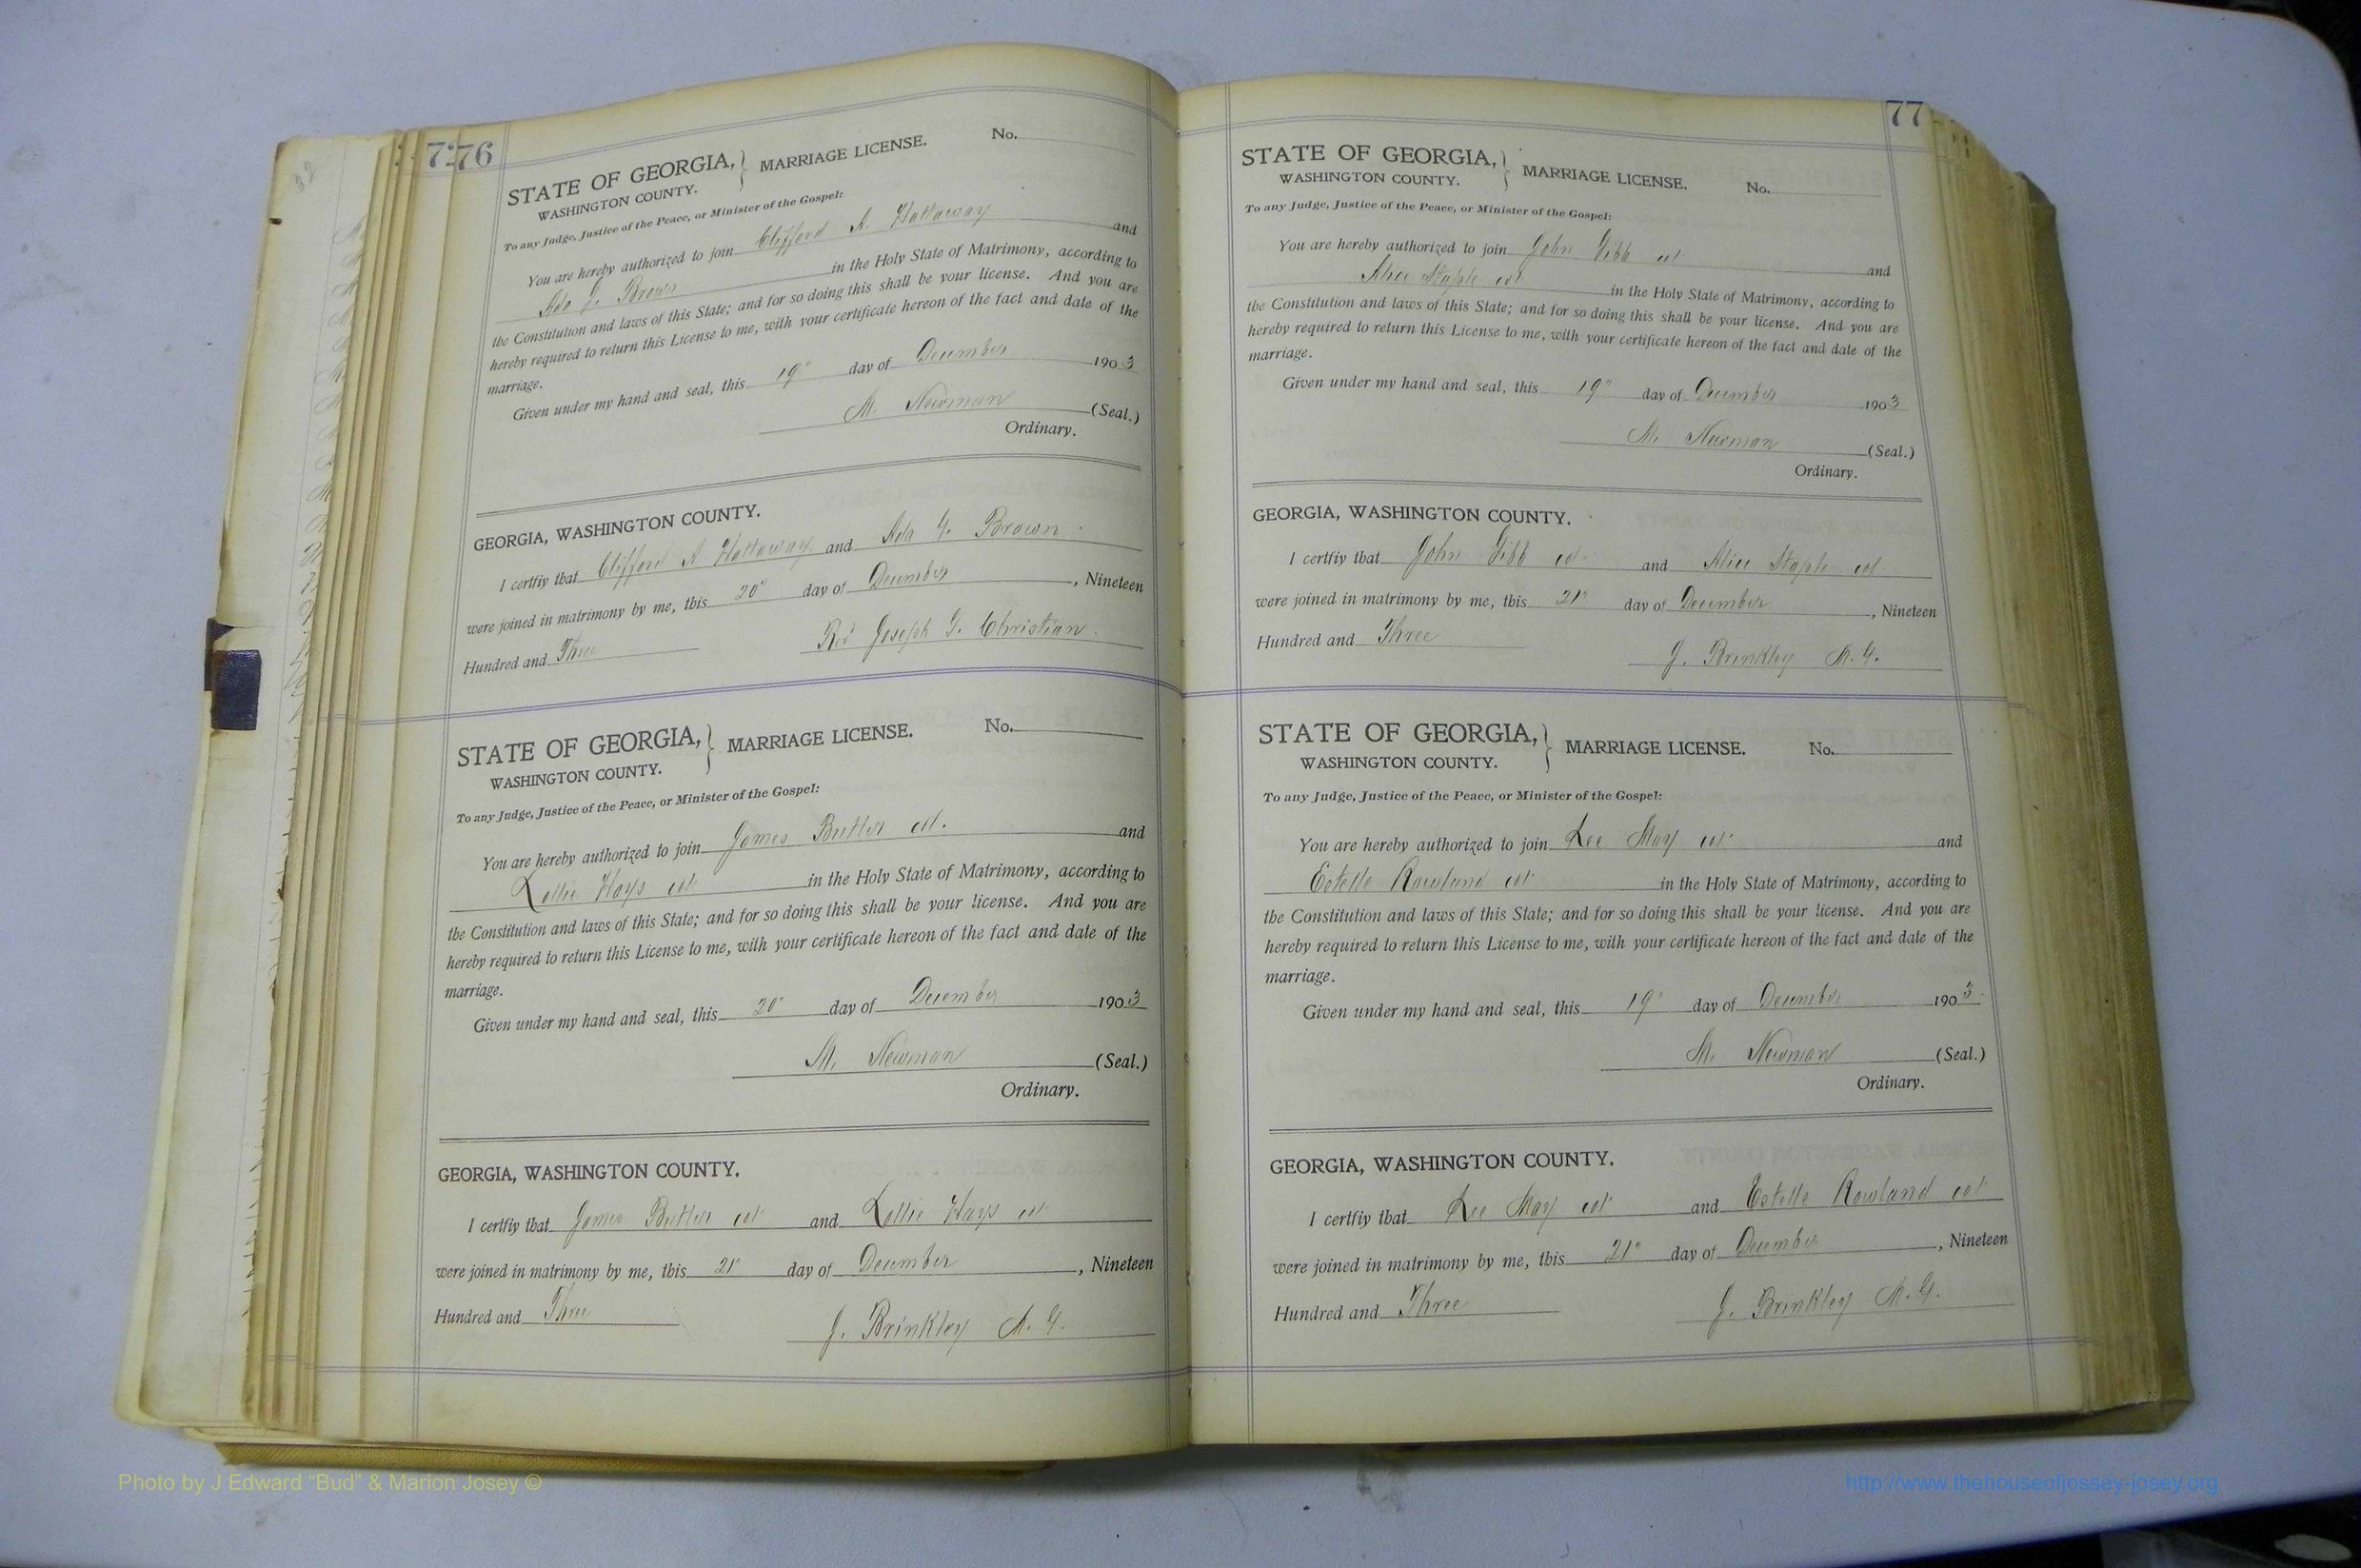 76
STATE OF GEORGIA, } MARRIAGE LICENSE. No.
WASHINGTON COUNTY.
To any Judge, Justice of the Peace, or Minister of the Gospel:
You are hereby authorized to join Clifford A. Hattaway and
Ada G. Brown in the Holy State of Matrimony, according to
the Constitution and laws of this State; and for so doing this shall be your license. And you are
hereby required to return this License to me, with your certificate hereon of the fact and date of the
marriage.
Given under my hand and seal, this 19" day of December 1903
M. Newman (Seal.)
Ordinary.
GEORGIA, WASHINGTON COUNTY.
I certfiy that Clifford A Hattaway and Ada G. Brown
were joined in matrimony by me, this 20" day of December, Nineteen
Hundred and Three
Rev Joseph G. Christian
STATE OF GEORGIA, } MARRIAGE LICENSE. No.
WASHINGTON COUNTY.
To any Judge, Justice of the Peace, or Minister of the Gospel:
You are hereby authorized to join James Butler col. and
Lollie Hays col in the Holy State of Matrimony, according to
the Constitution and laws of this State; and for so doing this shall be your license. And you are
hereby required to return this License to me, with your certificate hereon of the fact and date of the
marriage.
Given under my hand and seal, this 20" day of December 1903
M. Newman (Seal.)
Ordinary.
GEORGIA, WASHINGTON COUNTY.
I certfiy that James Butler col and Lollie Hays col
were joined in matrimony by me, this 21" day of December, Nineteen
Hundred and Three
J. Brinkley M. G.
77
STATE OF GEORGIA, } MARRIAGE LICENSE. No.
WASHINGTON COUNTY.
To any Judge, Justice of the Peace, or Minister of the Gospel:
You are hereby authorized to join John Gibb col and
Alice Staple col in the Holy State of Matrimony, according to
the Constitution and laws of this State; and for so doing this shall be your license. And you are
hereby required to return this License to me, with your certificate hereon of the fact and date of the
marriage.
Given under my hand and seal, this 19" day of December 1903
M. Newman (Seal.)
Ordinary.
GEORGIA, WASHINGTON COUNTY.
I certfiy that John Gibb col and Alice Staple col
were joined in matrimony by me, this 21" day of December, Nineteen
Hundred and Three
J. Brinkley M. G.
STATE OF GEORGIA, } MARRIAGE LICENSE. No.
WASHINGTON COUNTY.
To any Judge, Justice of the Peace, or Minister of the Gospel:
You are hereby authorized to join Lee May col and
Estelle Rawland col in the Holy State of Matrimony, according to
the Constitution and laws of this State; and for so doing this shall be your license. And you are
hereby required to return this License to me, with your certificate hereon of the fact and date of the
marriage.
Given under my hand and seal, this 19" day of December 1903
M. Newman (Seal.)
Ordinary.
GEORGIA, WASHINGTON COUNTY.
I certfiy that Lee May col and Estelle Rawland col
were joined in matrimony by me, this 21" day of December, Nineteen
Hundred and Three
J. Brinkley M. G.
Photo by J Edward "Bud" & Marion Josey ©
http://www.thehouseofjossey-josey.org